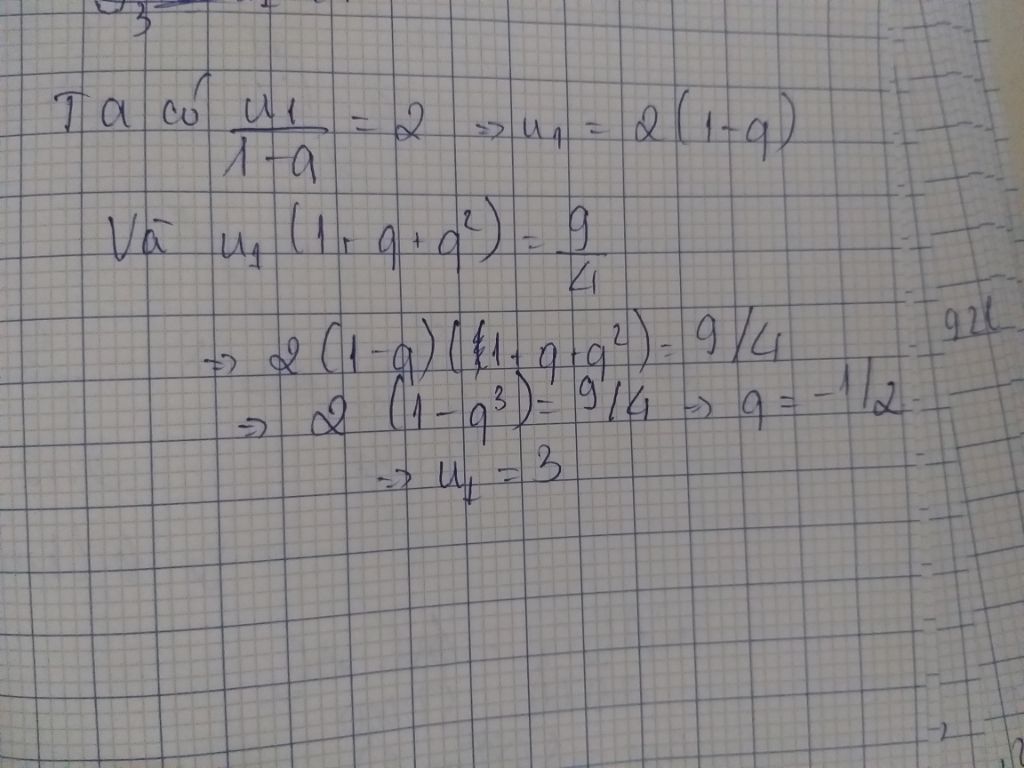 3
Ta có u₁/(1-q) = 2 ⇒ u₁ = 2(1-q)
Và u₁(1+q+q²) = 9/4
⇒ 2(1-q)(1+q+q²) = 9/4
⇒ 2(1-q³) = 9/4 ⇒ q = -1/2
⇒ u₁ = 3